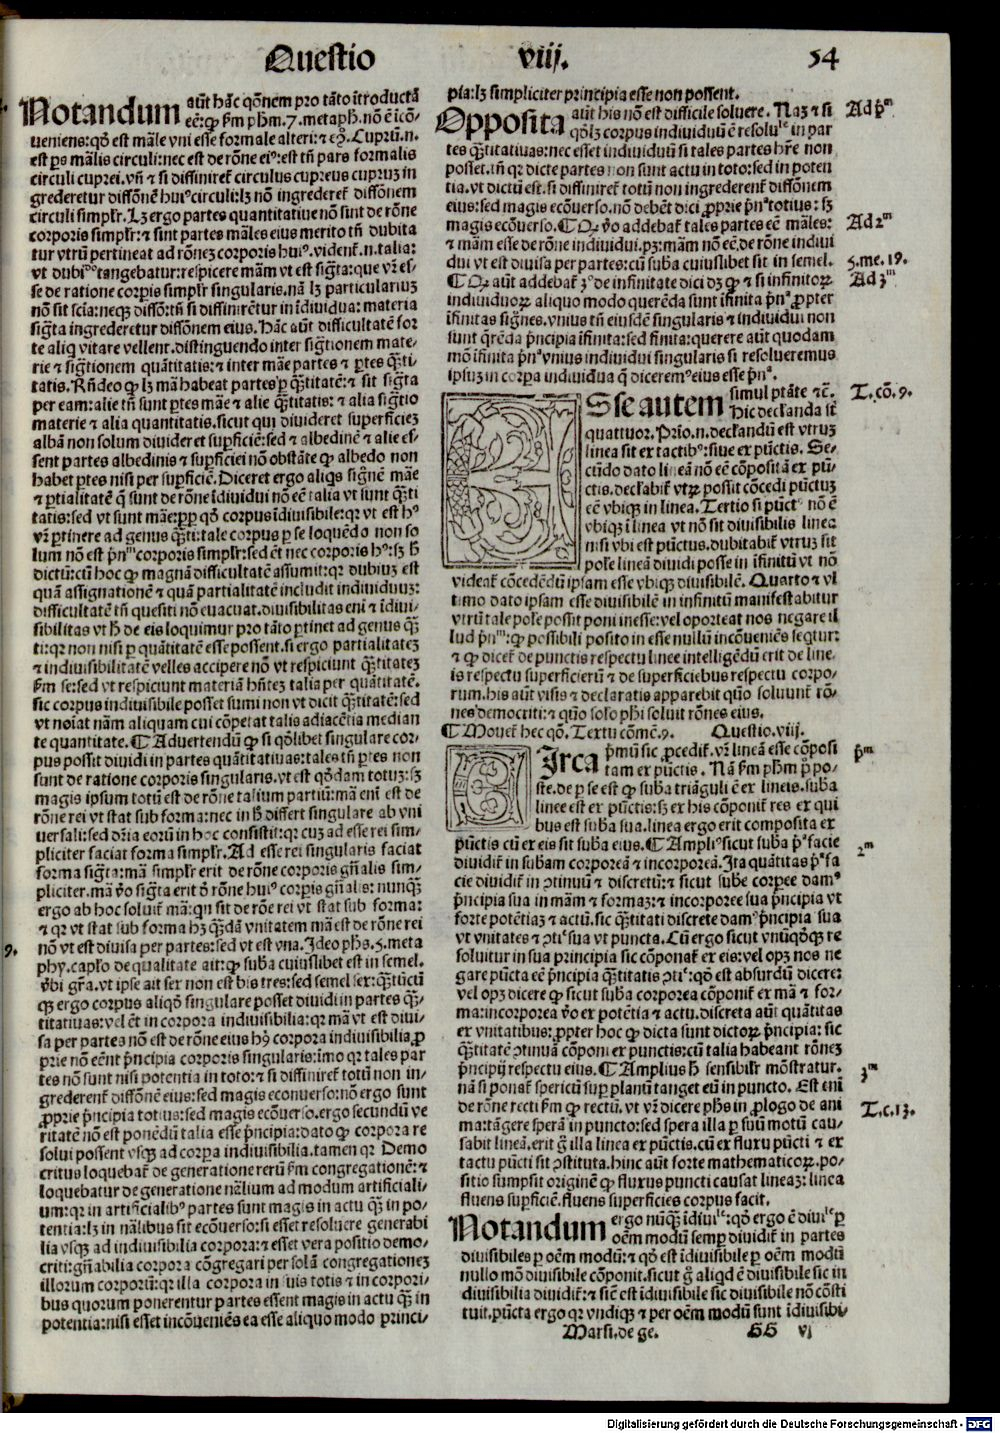 Questio viij. 54
Notandum aūt hāc qōnem pro tāto ītroductā
eē: ꝙ ẜm pħm.7.metapħ. nō ē icō/
ueniens: qđ est māle vni esse formale alteri: ⁊ eꝯ. Cuprū.n.
est ꝑs mālis circuli: nec est de rōne eiꝰ: est tñ pars formalis
circuli cuprei. vñ ⁊ si diffiniret̄ circulus cupreus cupruꝫ in
grederetur diffōnē huiꝰ circuli: lꝫ nō ingrederet̄ diffōnem
circuli simplr̄. Lꝫ ergo partes quantitatiue nō sint de rōne
corporis simplr̄: ⁊ sint partes māles eius merito tñ dubita
tur vtrū pertineat ad rōneꝫ corporis huiꝰ. vident̄.n.talia:
vt dubiᵘᵐ tangebatur: respicere mām vt est sigta: que vr̄ es/
se de ratione corpis simplr̄ singularis. nā lꝫ particulariuꝫ
nō sit scīa: neqꝫ diffō: tñ si diffinirētur indiuidua: materia
sigta ingrederetur diffōnem eius. Hāc aūt difficultatē for
te aliq vitare vellent. distinguendo inter sigtionem mate/
rie ⁊ sigtionem quātitatis: ⁊ inter māe partes ⁊ ꝑtes qꝫti/
tatis. Rñdeo ꝙ lꝫ mā habeat partes ꝑ qꝫtitatē: ⁊ sit sigta
per eam: alie tñ sunt ꝑtes māe ⁊ alie qꝫtitatis: ⁊ alia sigtio
materie ⁊ alia quantitatis. sicut qui diuideret superficieꝫ
albā non solum diuideret supficiē: sed ⁊ albedinē ⁊ alie es/
sent partes albedinis ⁊ supficiei nō obstāte ꝙ albedo non
habet ꝑtes nisi per supficiē. Diceret ergo aliqs signē māe
⁊ ꝑtialitatē q̄ sunt de rōne īdiuidui nō eē talia vt sunt qꝫti
tatis: sed vt sunt māe: ꝓp qđ corpus īdiuisibile: qꝛ vt est hꝰ
vr̄ ꝑtinere ad genus qꝫti: tale corpus ꝑ se loquēdo non so
lum nō est ṗnᵐ corporis simplr̄: sed ēt nec corporis hꝰ: sꝫ ħ
dictū: cū hoc ꝙ magnā difficultatē assumit: qꝛ dubiuꝫ est
quā assignationē ⁊ quā partialitatē includit indiuiduuꝫ:
difficultatē tñ quesiti nō euacuat. diuisibilitas eni ⁊ īdiui/
sibilitas vt ħ de eis loquimur pro tāto ꝑtinet ad genus qꝫ
ti: qꝛ non nisi ꝑ quātitatē esse possent. si ergo partialitateꝫ
⁊ indiuisibilitatē velles accipere nō vt respiciunt qꝫtitateꝫ
ẜm se: sed vt respiciunt materiā hñteꝫ talia per quātitatē.
sic corpus indiuisibile posset sumi non vt dicit qꝫtitatē: sed
vt noīat nām aliquam cui cōpetat talis adiacētia median
te quantitate. ¶ Aduertendū ꝙ si qōlibet singulare cor/
pus possit diuidi in partes quātitatiuas: tales tñ ꝑtes non
sunt de ratione corporis singularis. vt est qōdam totuꝫ: sꝫ
magis ipsum totū est de rōne talium partiū: mā eni est de
rōne rei vt stat sub forma: nec in ħ differt singulare ab vni
uersali: sed dr̄ia eorū in hoc consistit: qꝛ cuꝫ ad esse rei sim/
pliciter faciat forma simplr̄. Ad esse rei singularis faciat
forma sigta: mā simplr̄ erit de rōne corporis gñalis sim/
pliciter. mā v̄o sigta erit ō rōne huiꝰ corpis gñalis: nunqꝫ
ergo ab hoc soluit̄ mā: qn sit de rōe rei vt stat sub forma:
⁊ qꝛ vt stat sub forma hꝫ qꝫdā vnitatem mā est de rōne rei
nō vt est diuisa per partes: sed vt est vna. Ideo pħs.5.meta 9.
phy. caplo de qualitate ait: ꝙ suba cuiuslibet est in semel.
v̄bi gr̄a. vt ipse ait ser non est bis tres: sed semel sex: qꝫtūcū
qꝫ ergo corpus aliqō singulare posset diuidi in partes qꝫ/
titatiuas: vel ēt in corpora indiuisibilia: qꝛ mā vt est diui/
sa per partes nō est de rōne eius hꝫ corpora indiuisibilia ꝓ
prie nō eēnt ṗncipia corporis singularis: imo qꝛ tales par
tes nō sunt nisi potentia in toto: ⁊ si diffiniret̄ totū non in/
grederent̄ diffōnē eius: sed magis econuerso: nō ergo sunt
ꝓprie ṗncipia totius: sed magis ecōuerso. ergo secundū ve
ritatē nō est ponēdū talia esse ṗncipia: dato ꝙ corpora re
solui possent vsqꝫ ad corpa indiuisibilia. tamen qꝛ Demo
critus loquebat̄ de generatione rerū ẜm congregationē: ⁊
loquebatur de generatione nālium ad modum artificiali/
um: qꝛ in artificialibꝰ partes sunt magis in actu qꝫ in po/
tentia: lꝫ in nālibus sit ecōuerso: si esset resoluere generabi
lia vsqꝫ ad indiuisibilia corpora: ⁊ esset vera positio demo/
criti: gñabilia corpora cōgregari per solā congregationeꝫ
illorum corporū: qꝛ illa corpora in suis totis ⁊ in corpori/
bus quorum ponerentur partes essent magis in actu qꝫ in
potentia: nisi esset incōueniēs ea esse aliquo modo princi/
pia: lꝫ simpliciter principia esse non possent.
Opposita aūt his nō est difficile soluere. Naꝫ ⁊ si Ad pᵐ
qōlꝫ corpus indiuiduū ē resoluᶦᵉ in par
tes qꝫtitatiuas: nec esset indiuiduū si tales partes hr̄e non
posset. tñ qꝛ dicte partes non sunt actu in toto: sed in poten
tia. vt dictū est. si diffiniret̄ totū non ingrederent̄ diffōnem
eius: sed magis ecōuerso. nō debēt dici ꝓprie ṗnᵃ totius: sꝫ
magis ecōuerso. ¶ Qꝛ v̄o addebat̄ tales partes eē māles: Ad 2ᵐ
⁊ mām esse de rōne indiuidui. pꝫ: mām nō eē. de rōne indiui
dui vt est diuisa per partes: cū suba cuiuslibet sit in semel. 5.me.19.
¶ Qꝛ aūt addebat̄ ꝫᵒ de infinitate dici dꝫ ꝙ ⁊ si infinitoꝝ Ad ꝫᵐ
indiuiduoꝝ aliquo modo querēda sunt īfinita ṗnᵃ ꝓpter
īfinitas signes. vnius tñ eiusdē singularis ⁊ indiuidui non
sunt q̄rēda ṗncipia īfinita: sed finita: querere aūt quodam
mō īfinita ṗnᵃ vnius indiuidui singularis si resolueremus
ipsuꝫ in corpa indiuidua q̄ diceremꝰ eius esse ṗnᵃ.
ESse autem simul ptāte ⁊c̄. T.cō.9.
Hic declanda st̄
quattuor. Prīo.n.declandū est vtruꝫ
linea sit ex tactibꝰ: siue ex pūctis. Se/
cūdo dato lineā nō eē cōpositā ex pū/
ctis. declabit̄ vtꝝ possit cōcedi pūctuꝫ
eē vbiqꝫ in linea. Tertio si pūctꝰ nō ē
vbiqꝫ ī linea vt nō sit diuisibilis linea
nisi vbi est pūctus. dubitabit̄ vtruꝫ sit
pole lineā diuidi posse in īfinitū vt nō
videat̄ cōcedēdū ipsam esse vbiqꝫ diuisibilē. Quarto ⁊ vl
timo dato ipsam esse diuisibilē in infinitū manifestabitur
vtrū tale pole possit poni inesse: vel oporteat nos negare il
lud ṗnᵐ: ꝙ possibili posito in esse nullū incōueniēs sequr:
⁊ ꝙ dicet̄ de punctis respectu linee intelligēdū erit de line/
is respectu superficierū ⁊ de superficiebus respectu corpo/
rum. his aūt visis ⁊ declaratis apparebit quō soluunt̄ rō/
nes democriti: ⁊ quō solo pħi soluit rōnes eius.
¶ Mouet̄ hec qō. Textu cōmē.9. Questio.viij.
CIrca pͥmū sic ꝓcedit̄. vr̄ lineā esse cōposi pͥᵐ
tam ex pūctis. Nā ẜm pħm p̊ po/
ste. de ꝑ se est ꝙ suba triāguli ē ex lineis. suba
linee est ex pūctis: sꝫ ex his cōponit̄ res ex qui
bus est suba sua. linea ergo erit composita ex
pūctis cū ex eis sit suba eius. ¶ Ampliꝰ sicut suba p̊ᵃ facie 2ᵐ
diuidit̄ in subam corporeā ⁊ incorporeā. Ita quātitas p̊ᵃ fa
cie diuidit̄ in ꝯtinuū ⁊ discretū: ⁊ sicut sube corpee damꝰ
ṗncipia sua in mām ⁊ formaꝫ: ⁊ incorporee sua ṗncipia vt
forte potētiaꝫ ⁊ actū. sic qꝫtitati discrete damꝰ ṗncipia sua
vt vnitates ⁊ ꝯtiᵉ sua vt puncta. Cū ergo sicut vnūqōqꝫ re
soluitur in sua principia sic cōponat̄ ex eis: vel opꝫ nos ne
gare pūcta eē ṗncipia qꝫtitatis ꝯtiᵉ: qō est absurdū dicere:
vel opꝫ dicere ꝙ sicut suba corporea cōponit̄ ex mā ⁊ for/
ma: incorporea v̄o ex potētia ⁊ actu. discreta aūt quātitas
ex vnitatibus: ꝓpter hoc ꝙ dicta sunt dictoꝝ ṗncipia: sic
qꝫtitatē ꝯtinuā cōponi ex punctis: cū talia habeant rōneꝫ
ṗncipij respectu eius. ¶ Amplius ħ sensibilr̄ mōstratur. ꝫᵐ
nā si ponat̄ spericū sup planū tanget eū in puncto. Est eni
de rōne recti ẜm ꝙ rectū. vt vr̄ dicere pħs in ꝓlogo de ani T.c.1ꝫ.
ma: tāgere sperā in puncto: sed spera illa ꝑ suū motū cau/
sabit lineā. erit g̊ illa linea ex pūctis. cū ex fluxu pūcti ⁊ ex
tactu pūcti sit ꝯstituta. hinc aūt forte mathematicoꝝ. po/
sitio sumpsit originē ꝙ fluxus puncti causat lineaꝫ: linea
fluens supficiē. fluens superficies corpus facit.
Notandum ergo nūqꝫ īdiuiᶦᵉ: qō ergo ē diuiᶦᵉ ꝑ
oēm modū semꝑ diuidit̄ in partes
diuisibiles ꝑ oēm modū: ⁊ qō est īdiuisibile ꝑ oēm modū
nullo mō diuisibile cōponit. sicut g̊ aliqd ē diuisibile sic in
diuisibilia diuidit̄: ⁊ sic est īdiuisibile sic diuisibile nō cōsti
tuit. pūcta ergo qꝛ vndiqꝫ ⁊ per oēm modū sunt īdiuisibi/
Marsi. de ge. GG vj
Digitalisierung gefördert durch die Deutsche Forschungsgemeinschaft - DFG